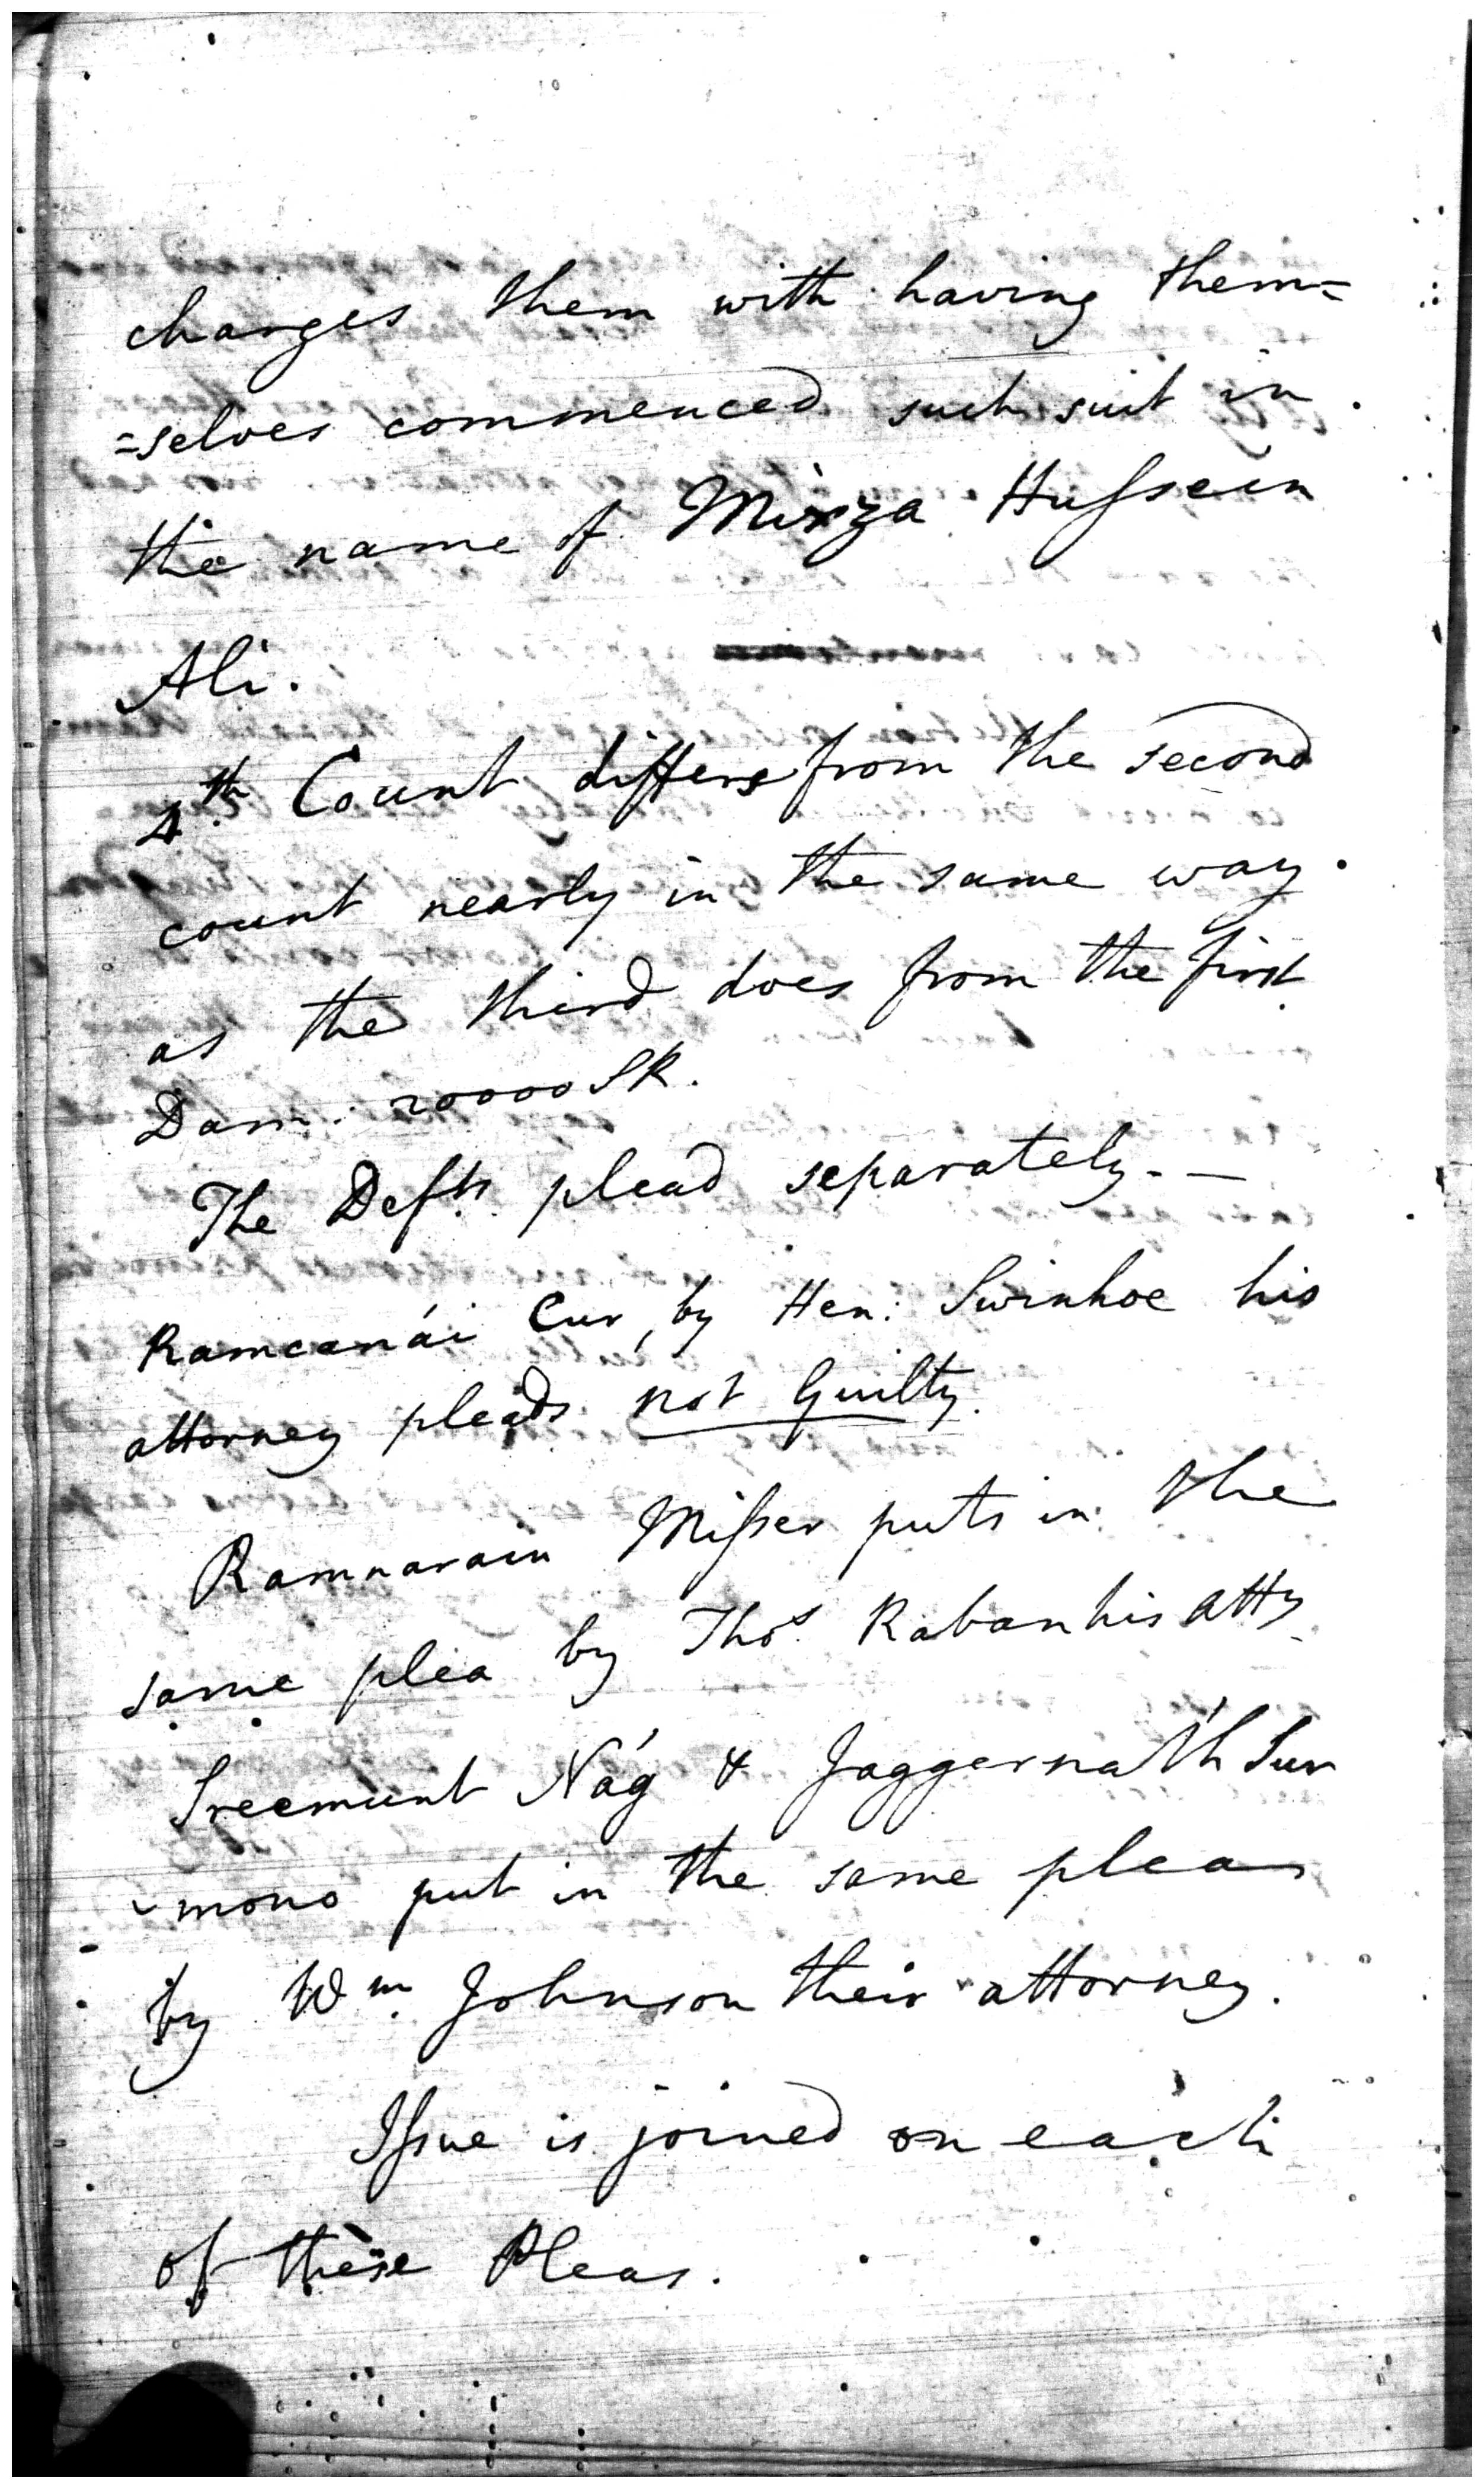 charges them with having them=
=selves commenced such suit in
the name of Mirza Hussein
Ali.
4th. Count differs from the second
count nearly in the same way
as the third does from the first
Dam: 20000 SR.
The Defts. plead separately. —
Ramcanái Cur, by Hen: Swinhoe his
attorney pleads not Guilty.
Ramnarain Misser puts in the
same plea by Thos. Raban his atty
Sreemunt Nág & Jaggernáth Sur
-mono put in the same pleas
by Wm. Johnson their attorney.
Issue is joined on each
of these Pleas.